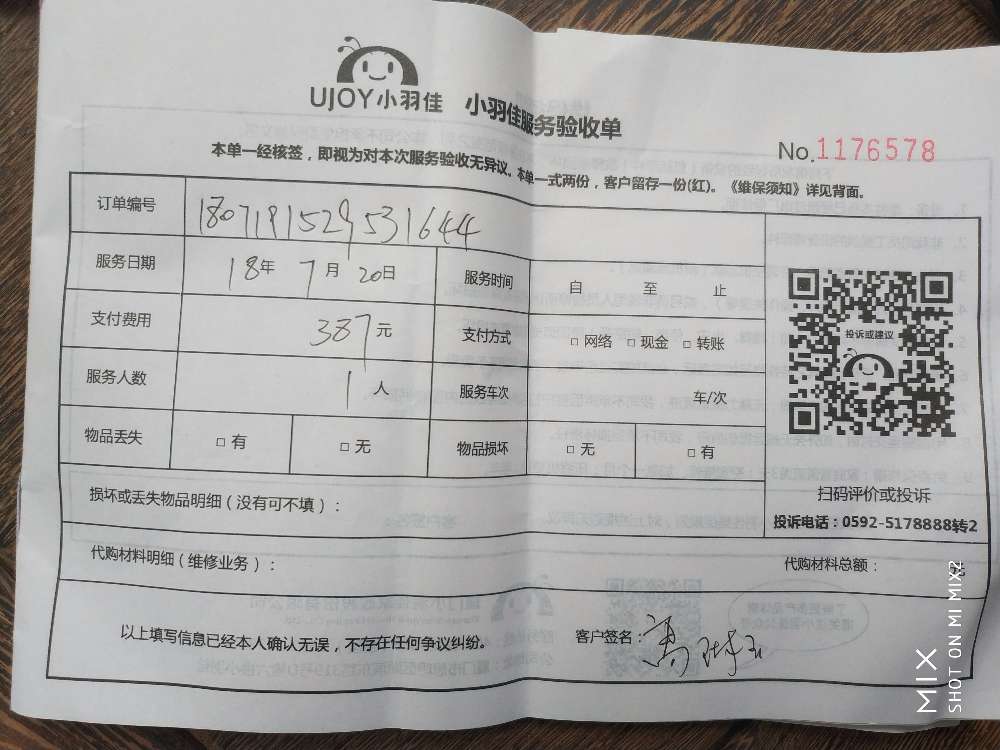 UJOY小羽佳 小羽佳服务验收单
No.1176578
本单一经核签，即视为对本次服务验收无异议。本单一式两份，客户留存一份(红)。《维保须知》详见背面。
订单编号 1807191529531644
服务日期 18年 7月 20日 服务时间 自 至 止
支付费用 387元 支付方式 □ 网络 □ 现金 □ 转账
服务人数 1人 服务车次 车/次
物品丢失 □ 有 □ 无 物品损坏 □ 无 □ 有
投诉或建议
扫码评价或投诉
投诉电话：0592-5178888转2
损坏或丢失物品明细（没有可不填）：
代购材料明细（维修业务）： 代购材料总额：
以上填写信息已经本人确认无误，不存在任何争议纠纷。 客户签名：
MIX
SHOT ON MI MIX2